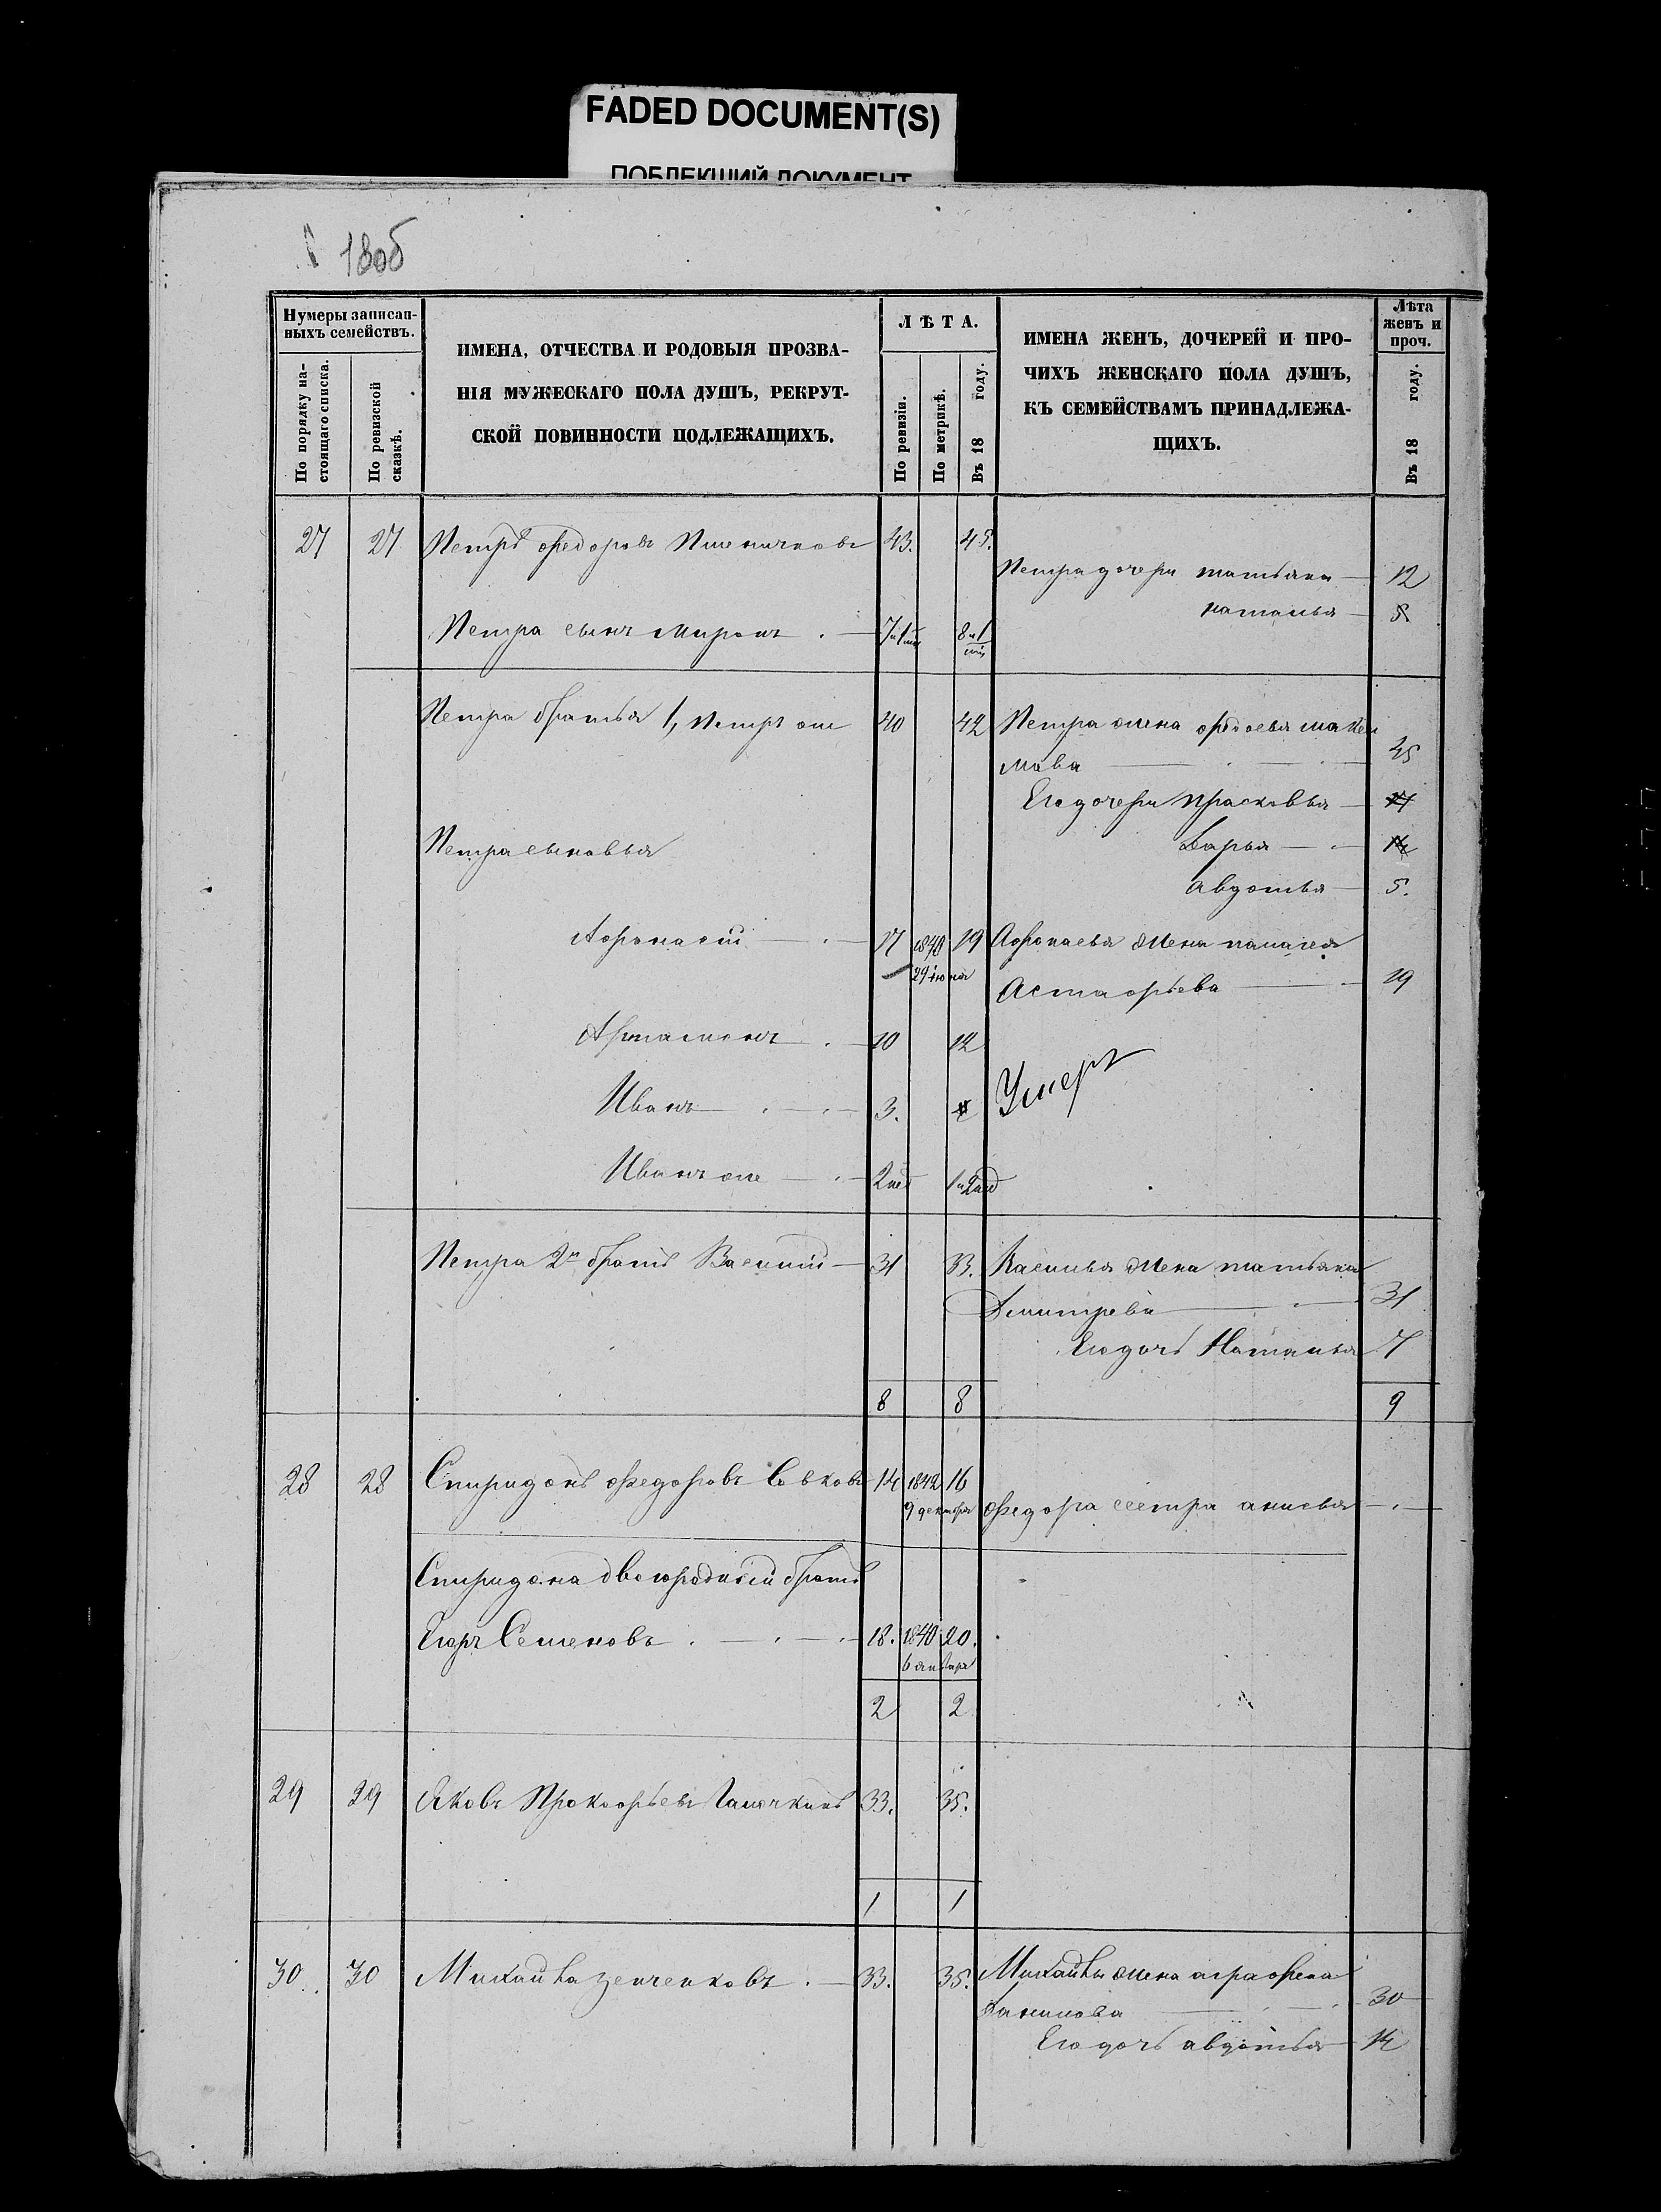 FADED DOCUMENT(S)
ПОБЛЕКШИЙ ДОКУМЕНТ
180б
Нумеры записан-
ныхъ семействъ.
По порядку на-
стоящаго списка.
По ревизской
сказкѣ.
ИМЕНА, ОТЧЕСТВА И РОДОВЫЯ ПРОЗВА-
НІЯ МУЖЕСКАГО ПОЛА ДУШЪ, РЕКРУТ-
СКОЙ ПОВИННОСТИ ПОДЛЕЖАЩИХЪ.
ЛѢТА.
По ревизіи.
По метрикѣ.
Въ 18 году.
ИМЕНА ЖЕНЪ, ДОЧЕРЕЙ И ПРО-
ЧИХЪ ЖЕНСКАГО ПОЛА ДУШЪ,
КЪ СЕМЕЙСТВАМЪ ПРИНАДЛЕЖА-
ЩИХЪ.
Лѣта
женъ и
проч.
Въ 18 году.
27 27 Петръ Федоровъ Пшеничновъ 43. 45.
Петра дочери татьяна 12
наталья
Петра сынъ Миронъ
Петра братья 1, Петръ же 40 42 Петра жена
мова 35
Его дочери Прасковья
Петра сыновья
Дарья
Авдотья 5.
Афонасій 17 1840 19 Афонасья жена палагея
29 іюня
Астафьева 19
Артамонъ 10 12
Иванъ 3. Умеръ
Иванъ же
Петра 2й братъ Василій 31 33. Василья жена татьяна
Дмитрева 31
Его дочь Наталья 7
8 8 9
28 28 Спиридонъ Федоровъ Совковъ 14 1842 16
9 декабря Федора сестра анисья
Спиридона двоюродный братъ
Егоръ Семеновъ 18. 1840 20.
6 января
2 2
29 29 Яковъ Прокофьевъ 33. 35.
1 1
30 30 Михайла 33. 35. Михайлы жена аграфена
Данилова 30
Его дочь авдотья 14